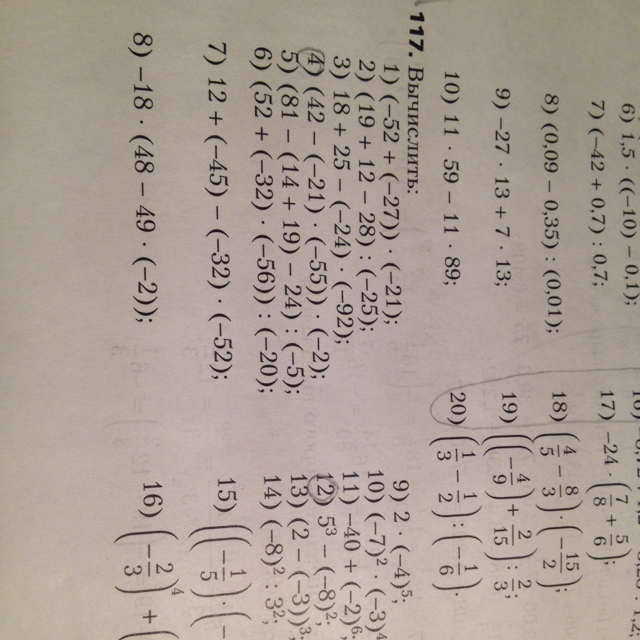 6) 1,5 · ((−10) − 0,1);
7) (−42 + 0,7) : 0,7;
8) (0,09 − 0,35) : (0,01);
9) −27 · 13 + 7 · 13;
10) 11 · 59 − 11 · 89;
17) −24 · (7/8 + 5/6);
18) (4/5 − 8/3) · (−15/2);
19) ((−4/9) + 2/15) : 2/3;
20) (1/3 − 1/2) : (−1/6).
117. Вычислить:
1) (−52 + (−27)) · (−21);
2) (19 + 12 − 28) : (−25);
3) 18 + 25 − (−24) · (−92);
4) (42 − (−21) · (−55)) · (−2);
5) (81 − (14 + 19) − 24) : (−5);
6) (52 + (−32) · (−56)) : (−20);
7) 12 + (−45) − (−32) · (−52);
8) −18 · (48 − 49 · (−2));
9) 2 · (−4)⁵;
10) (−7)² · (−3)⁴
11) −40 + (−2)⁶;
12) 5³ − (−8)²;
13) (2 − (−3))³;
14) (−8)² : 3²;
15) ((−1/5) · (−
16) (−2/3)⁴ + (